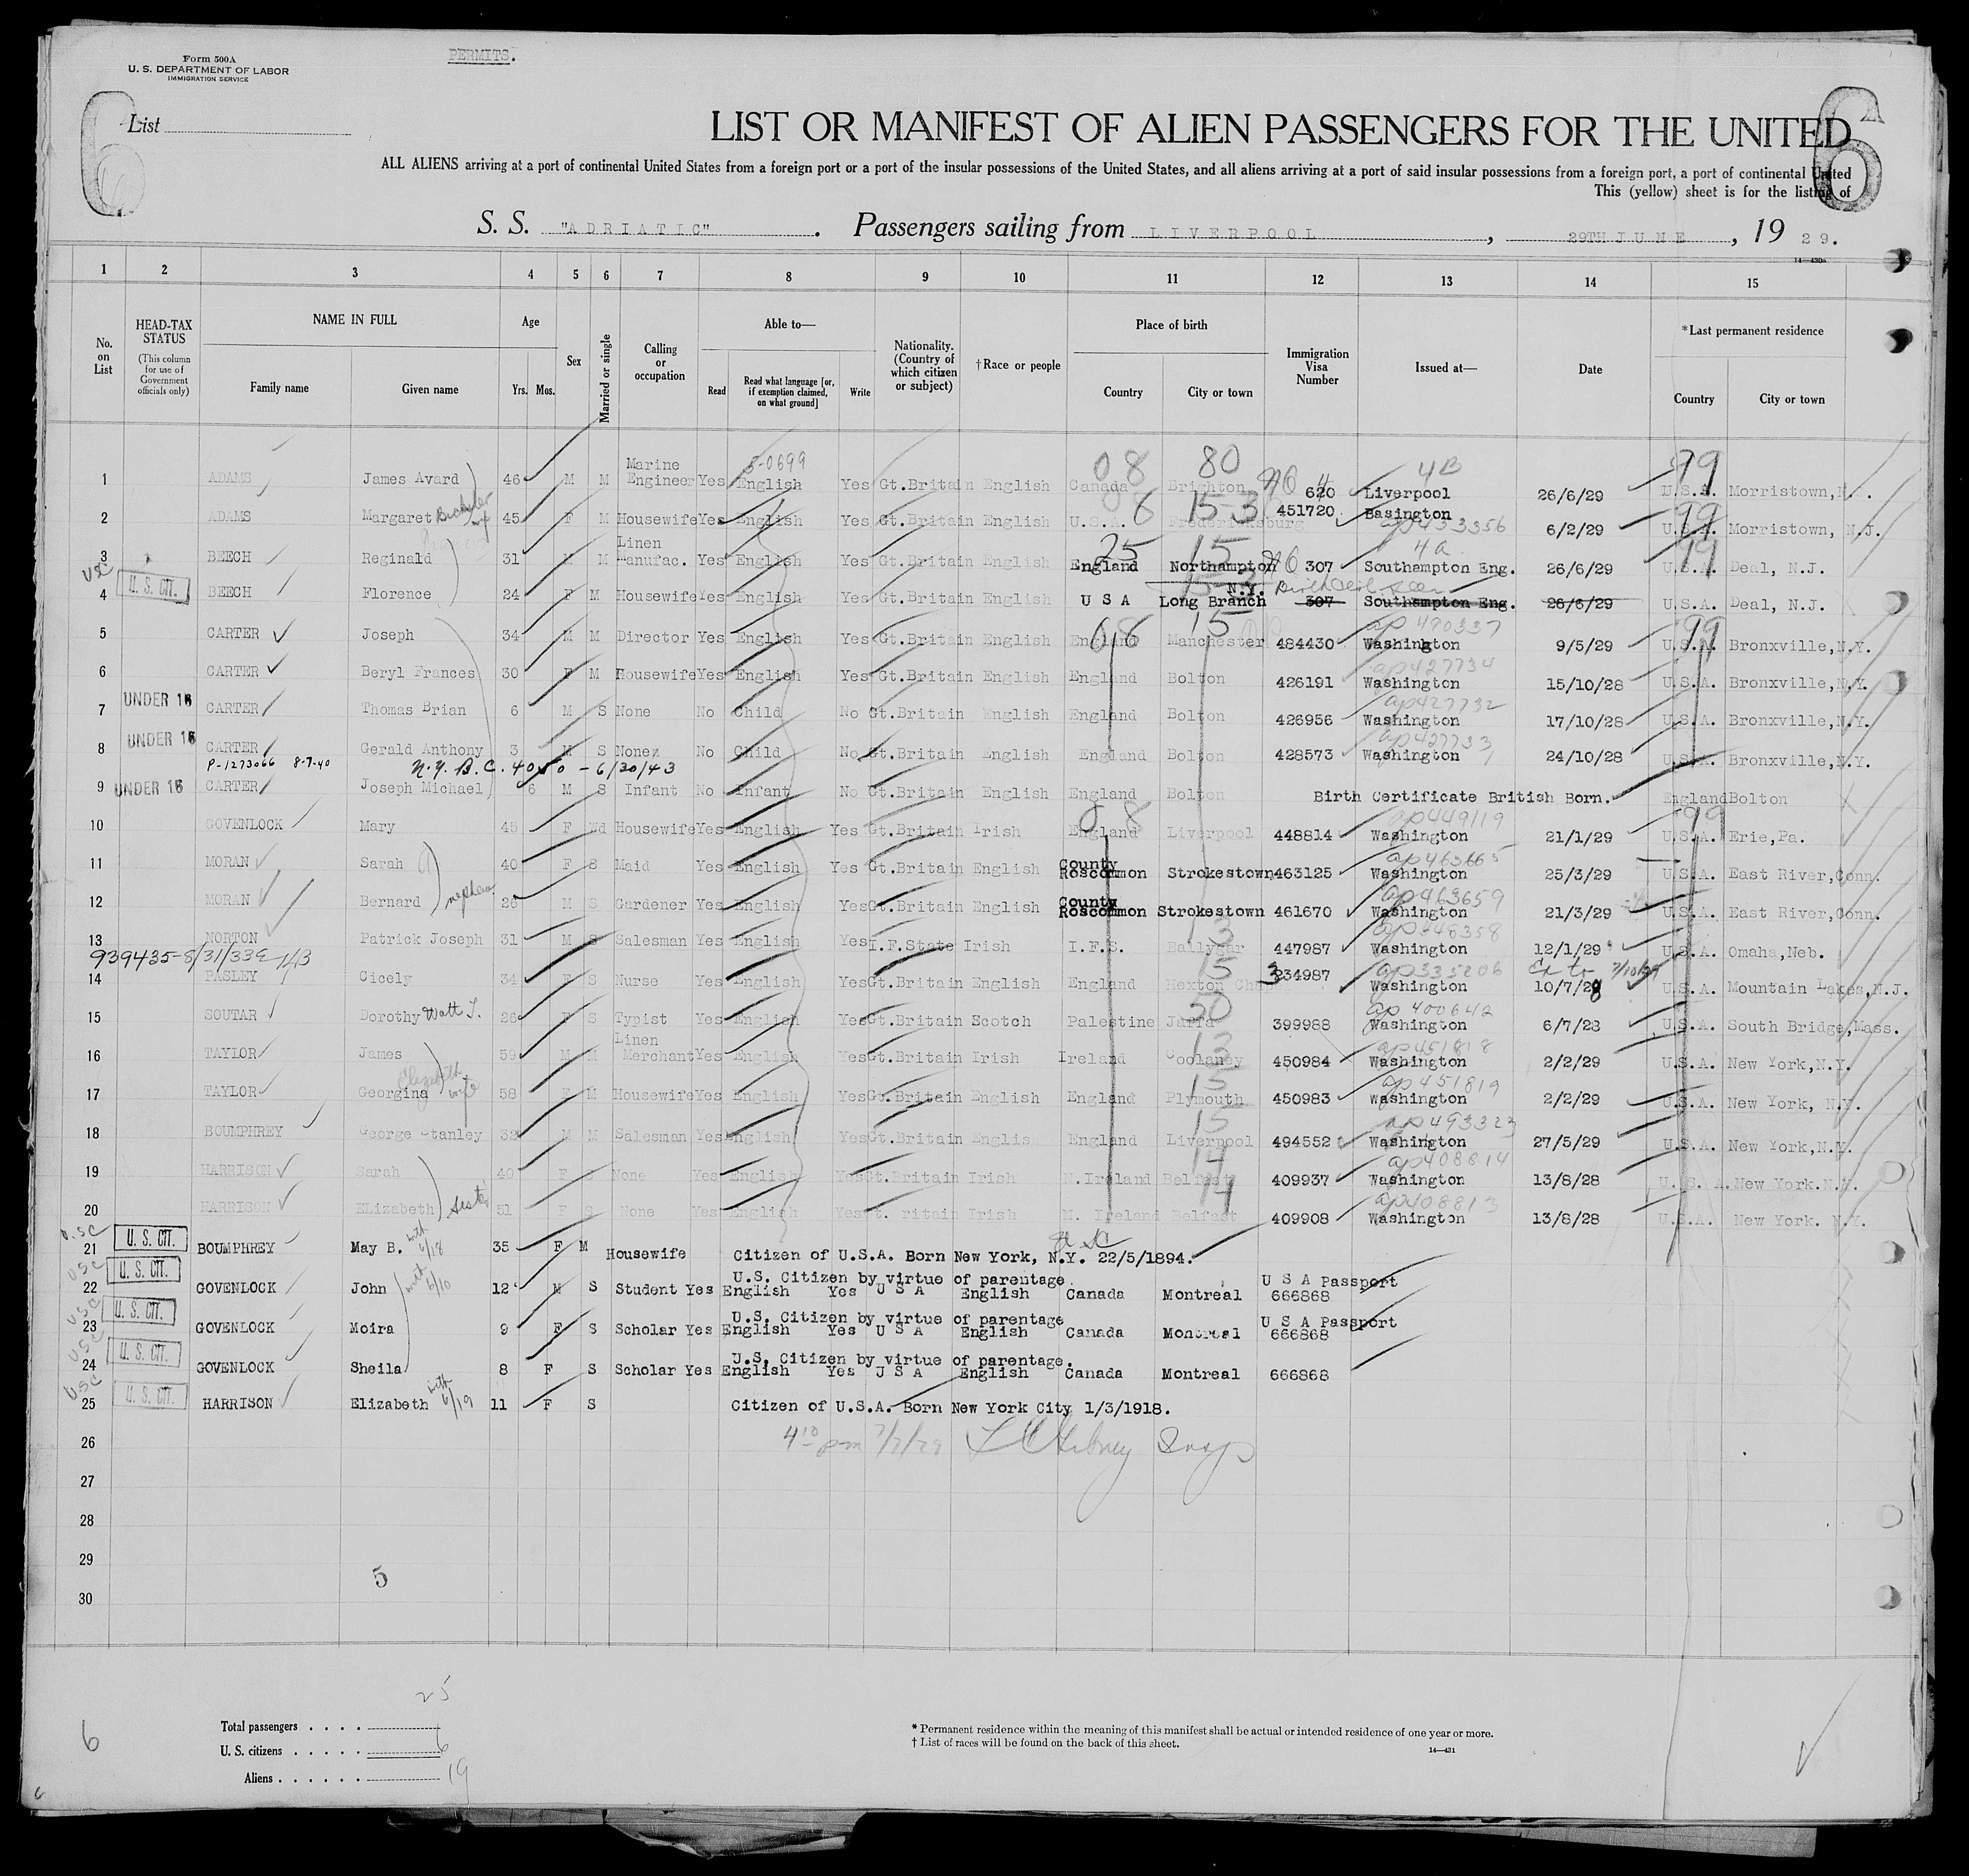 Form 500A
U. S. DEPARTMENT OF LABOR
IMMIGRATION SERVICE
PERMITS.
6
List
6
LIST OR MANIFEST OF ALIEN PASSENGERS FOR THE UNITED
ALL ALIENS arriving at a port of continental United States from a foreign port or a port of the insular possessions of the United States, and all aliens arriving at a port of said insular possessions from a foreign port, a port of continental United
This (yellow) sheet is for the listing of
S. S. "ADRIATIC". Passengers sailing from LIVERPOOL, 29TH JUNE, 1929.
14—430a
1 2 3 4 5 6 7 8 9 10 11 12 13 14 15
No. on List
HEAD-TAX STATUS (This column for use of Government officials only)
NAME IN FULL
Family name Given name
Age
Yrs. Mos.
Sex
Married or single
Calling or occupation
Able to—
Read Read what language [or, if exemption claimed, on what ground] Write
Nationality. (Country of which citizen or subject)
†Race or people
Place of birth
Country City or town
Immigration Visa Number
Issued at—
Date
*Last permanent residence
Country City or town
5-0699 08 80 4B 99
1 ADAMS James Avard 46 M M Marine Engineer Yes English Yes Gt.Britain English Canada Brighton 620 Liverpool 26/6/29 U.S.A. Morristown,N.
08 153 99
2 ADAMS Margaret wf 45 F M Housewife Yes English Yes Gt.Britain English U.S.A. Fredericksburg 451720 Basington ap433356 6/2/29 U.S.A. Morristown, N.J.
25 15 4a 99
3 BEECH Reginald 31 M M Linen Manufac. Yes English Yes Gt.Britain English England Northampton 307 Southampton Eng. 26/6/29 U.S.A. Deal, N.J.
USC U. S. CIT.
4 BEECH Florence 24 F M Housewife Yes English Yes Gt.Britain English U S A Long Branch N.Y. 307 Southampton Eng. 26/6/29 U.S.A. Deal, N.J.
08 15 ap 490337 99
5 CARTER Joseph 34 M M Director Yes English Yes Gt.Britain English England Manchester 484430 Washington 9/5/29 U.S.A. Bronxville,N.Y.
ap427734
6 CARTER Beryl Frances 30 F M Housewife Yes English Yes Gt.Britain English England Bolton 426191 Washington 15/10/28 U.S.A. Bronxville,N.Y.
UNDER 16 ap427732
7 CARTER Thomas Brian 6 M S None No Child No Gt.Britain English England Bolton 426956 Washington 17/10/28 U.S.A. Bronxville,N.Y.
UNDER 16 ap427733
8 CARTER Gerald Anthony 3 M S None No Child No Gt.Britain English England Bolton 428573 Washington 24/10/28 U.S.A. Bronxville,N.Y.
P-1273066 8-7-40 N.Y. B.C. 4050 - 6/30/43
9 UNDER 16 CARTER Joseph Michael 6 M S Infant No Infant No Gt.Britain English England Bolton Birth Certificate British Born. England Bolton
08 ap449119 99
10 GOVENLOCK Mary 45 F Wd Housewife Yes English Yes Gt.Britain Irish England Liverpool 448814 Washington 21/1/29 U.S.A. Erie,Pa.
ap463665
11 MORAN Sarah 40 F S Maid Yes English Yes Gt.Britain English County Roscommon Strokestown 463125 Washington 25/3/29 U.S.A. East River,Conn.
ap463659
12 MORAN Bernard nephew 26 M S Gardener Yes English Yes Gt.Britain English County Roscommon Strokestown 461670 Washington 21/3/29 U.S.A. East River,Conn.
13 ap448358
13 NORTON Patrick Joseph 31 M S Salesman Yes English Yes I.F.State Irish I.F.S. Ballygar 447987 Washington 12/1/29 U.S.A. Omaha,Neb.
15 ap335206 7/10/29
14 PASLEY Cicely 34 F S Nurse Yes English Yes Gt.Britain English England Hexton 334987 Washington 10/7/28 U.S.A. Mountain Lakes,N.J.
30 ap 400642
15 SOUTAR Dorothy Watt S. 26 F S Typist Yes English Yes Gt.Britain Scotch Palestine Jaffa 399988 Washington 6/7/28 U.S.A. South Bridge,Mass.
13 ap451818
16 TAYLOR James 59 M M Linen Merchant Yes English Yes Gt.Britain Irish Ireland Coolaney 450984 Washington 2/2/29 U.S.A. New York,N.Y.
Elizabeth 15 ap451819
17 TAYLOR Georgina wife 58 F M Housewife Yes English Yes Gt.Britain English England Plymouth 450983 Washington 2/2/29 U.S.A. New York, N.Y.
15 ap493323
18 BOUMPHREY George Stanley 32 M M Salesman Yes English Yes Gt.Britain English England Liverpool 494552 Washington 27/5/29 U.S.A. New York,N.Y.
14 ap408814
19 HARRISON Sarah 40 F S None Yes English Yes Gt.Britain Irish N.Ireland Belfast 409937 Washington 13/8/28 U.S.A. New York.N.Y.
14 ap408813
20 HARRISON Elizabeth sister 51 F S None Yes English Yes Gt.Britain Irish N. Ireland Belfast 409908 Washington 13/8/28 U.S.A. New York. N.Y.
USC U. S. CIT. USC
21 BOUMPHREY May B. with 6/18 35 F M Housewife Citizen of U.S.A. Born New York, N.Y. 22/5/1894.
USC U. S. CIT. U.S. Citizen by virtue of parentage U S A Passport
22 GOVENLOCK John with 6/10 12 M S Student Yes English Yes U S A English Canada Montreal 666868
USC U. S. CIT. U.S. Citizen by virtue of parentage U S A Passport
23 GOVENLOCK Moira 9 F S Scholar Yes English Yes U S A English Canada Montreal 666868
USC U. S. CIT. U.S. Citizen by virtue of parentage.
24 GOVENLOCK Sheila 8 F S Scholar Yes English Yes U S A English Canada Montreal 666868
USC U. S. CIT.
25 HARRISON Elizabeth with 6/19 11 F S Citizen of U.S.A. Born New York City 1/3/1918.
26 4 10 pm 7/7/29
27
28
29
5
30
25
Total passengers
6
U. S. citizens 6
Aliens 19
* Permanent residence within the meaning of this manifest shall be actual or intended residence of one year or more.
† List of races will be found on the back of this sheet.
14—431